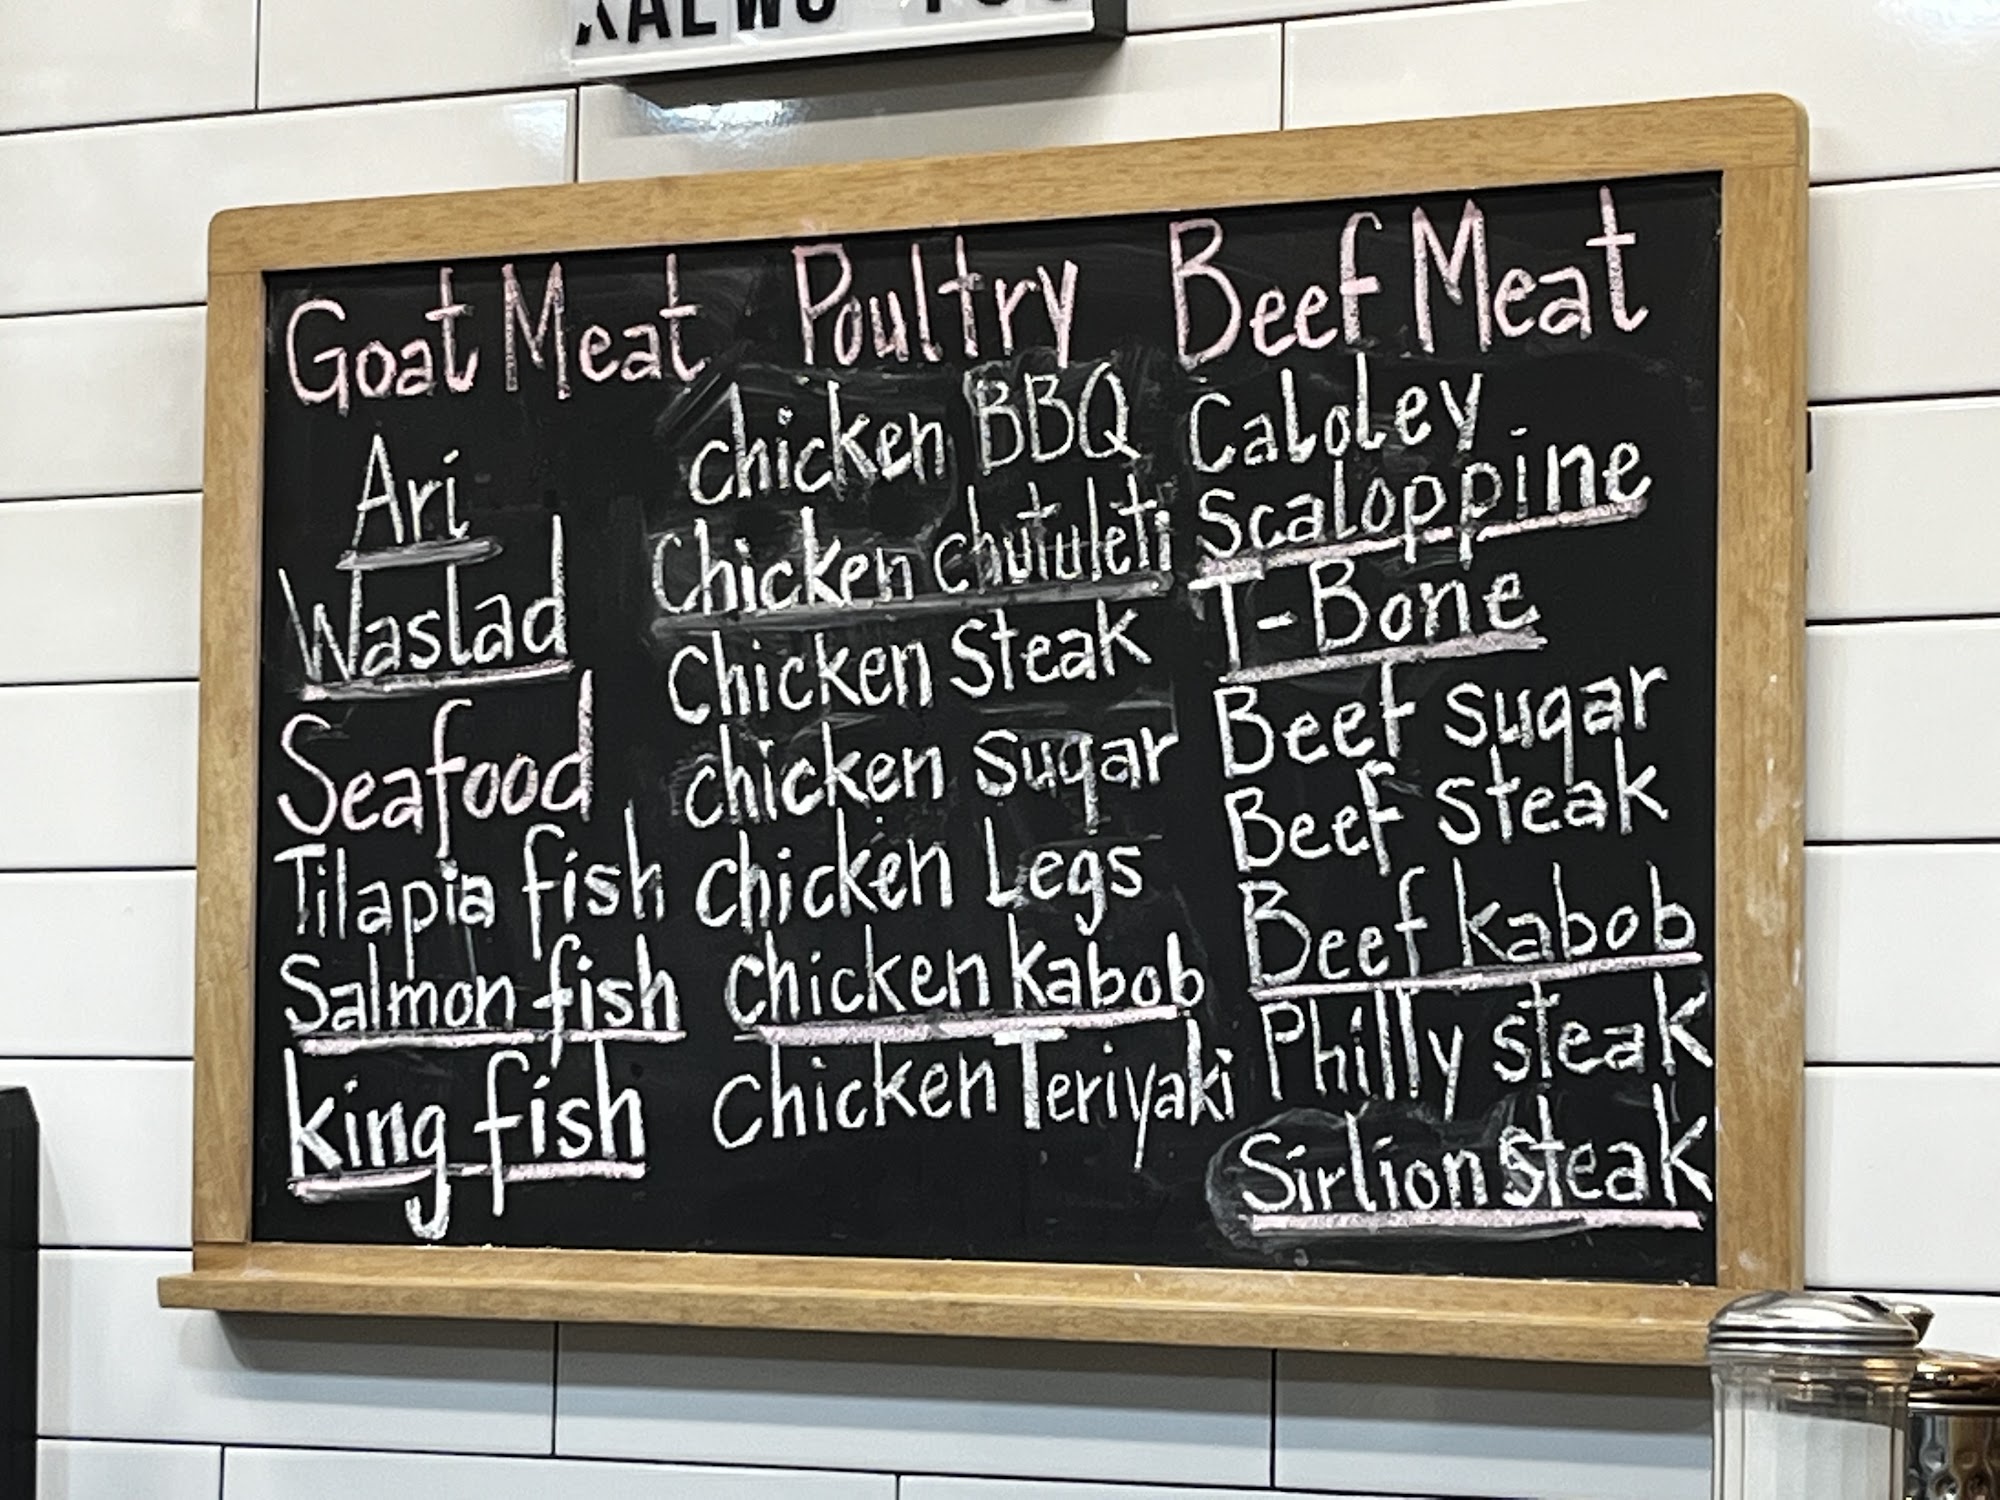 Goat Meat
Ari
Waslad
Seafood
Tilapia fish
Salmon fish
king fish
Poultry
chicken BBQ
Chicken chututeti
Chicken Steak
chicken Sugar
chicken Legs
chicken Kabob
Chicken Teriyaki
Beef Meat
Caloley
Scaloppine
T-Bone
Beef sugar
Beef steak
Beef kabob
Philly steak
Sirlion steak